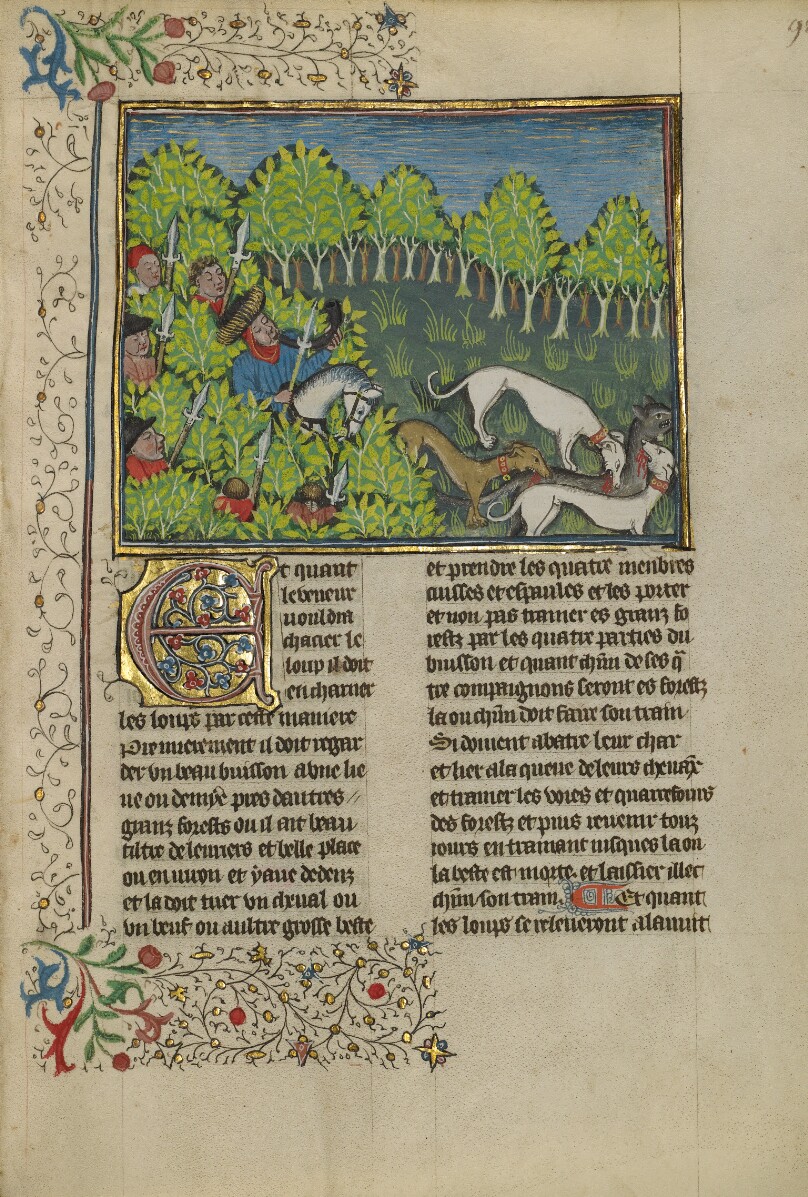 Et quant
le veneur
uouldra
chacier le
loup il doit
encharner
les loups par ceste maniere
Premierement il doit regar
der vn beau buisson a vne lie
ue ou demye pres dautres
granz forests ou il ait beau
tiltre de leuriers et belle place
ou enuiron et yaue dedenz
et la doit tuer vn cheual ou
vn beuf ou aultre grosse beste
et prendre les quatre menbres
cuisses et espaules et les porter
et non pas trainer es granz fo
restz par les quatre parties du
buisson et quant chun de ses q̄
tre compaignons seront es forestz
la ou chun doit faire son train
Si doiuent abatre leur char
et lier a la queue de leurs cheuax
et trainer les voies et quarrefours
des forestz et puis reuenir touz
iours en trainant iusques la ou
la beste est morte et laissier illec
chun son train. Et quant
les loups se releueront a la nuit